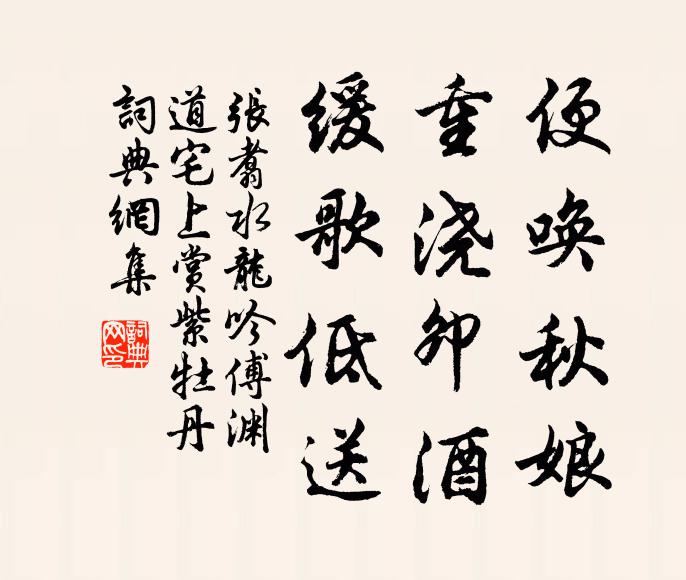 便唤秋娘
重浇卯酒
缓歌低送
張翥水龍吟傅渊
道宅上賞紫牡丹
詞典網集
詞典网印